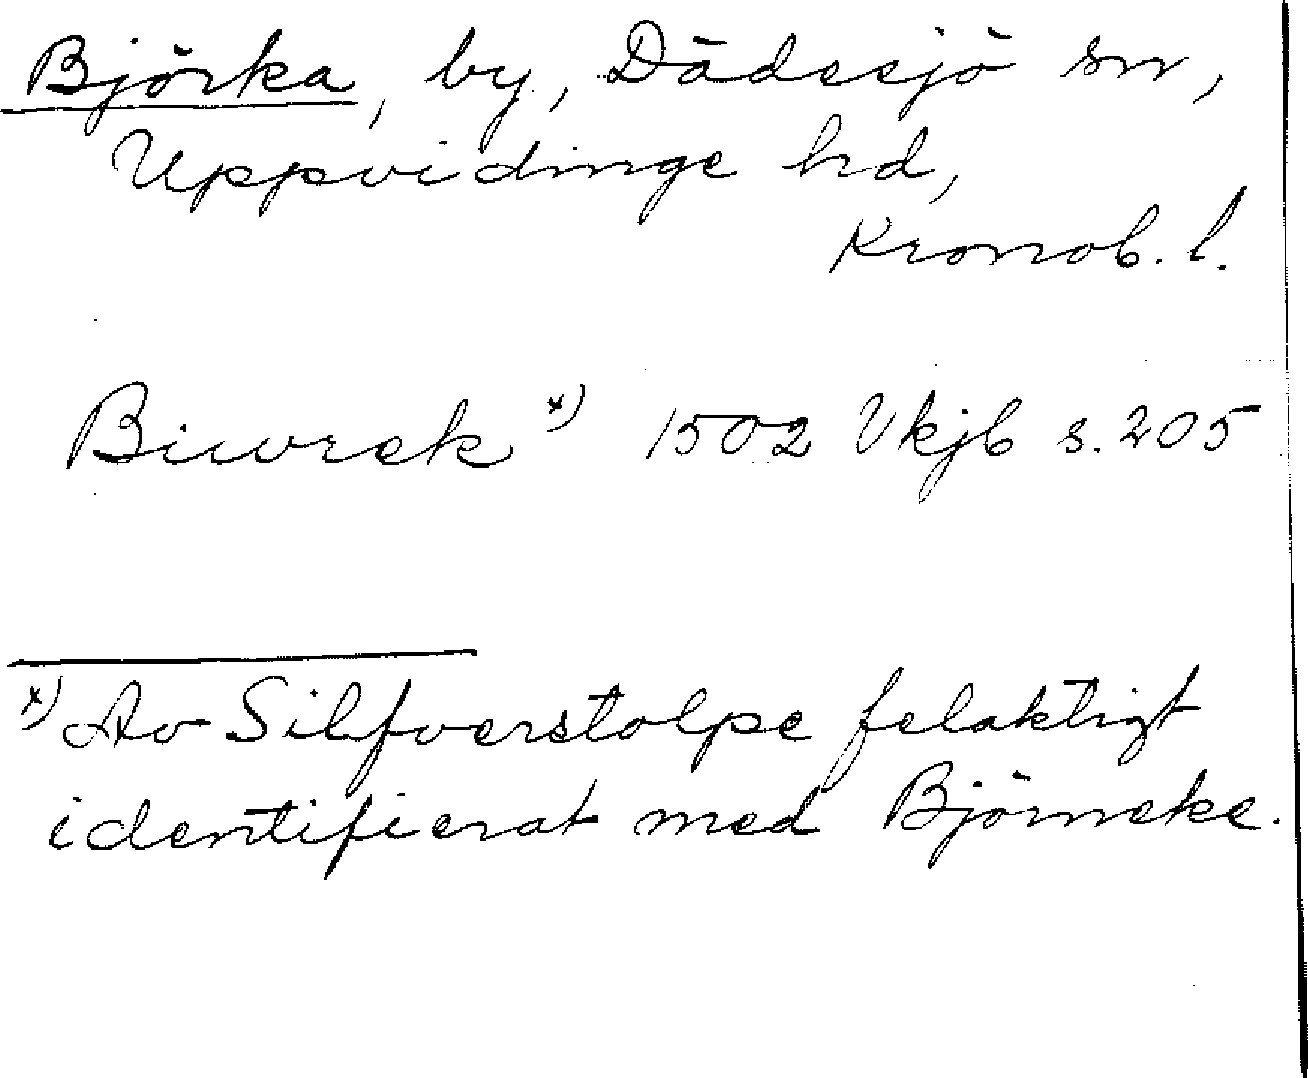 Björka, by, Dädesjö sn,
Uppvidinge hd,
Kronob. l.
Biwrek x) 1502 Vkjb s. 205
x) Av Silfverstolpe felaktigt
identifierat med Björneke.